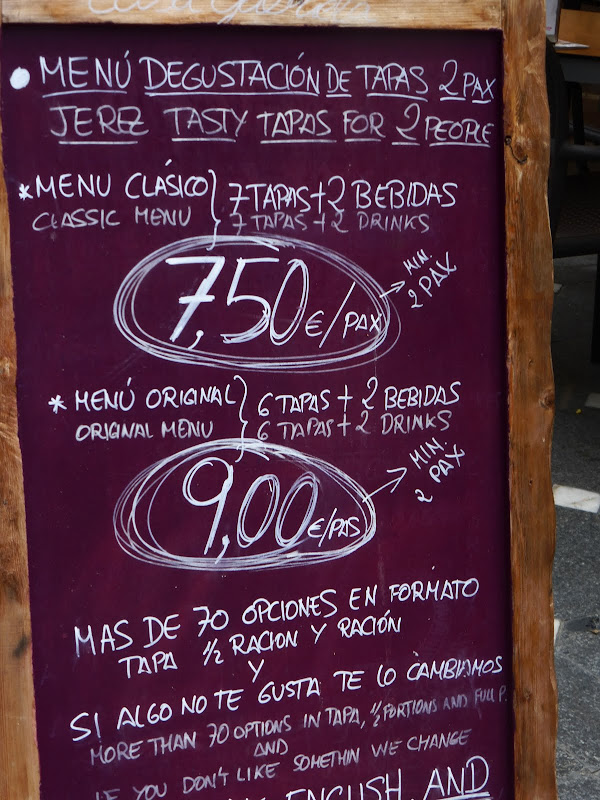 • MENÚ DEGUSTACIÓN DE TAPAS 2 PAX
JEREZ TASTY TAPAS FOR 2 PEOPLE
* MENU CLÁSICO } 7 TAPAS + 2 BEBIDAS
CLASSIC MENU 7 TAPAS + 2 DRINKS
7,50 €/PAX → MIN. 2 PAX
* MENÚ ORIGINAL } 6 TAPAS + 2 BEBIDAS
ORIGINAL MENU 6 TAPAS + 2 DRINKS
9,00 €/PAS → MIN. 2 PAX
MAS DE 70 OPCIONES EN FORMATO
TAPA ½ RACION Y RACIÓN
Y
SI ALGO NO TE GUSTA TE LO CAMBIAMOS
MORE THAN 70 OPTIONS IN TAPA, ½ PORTIONS AND FULL P.
AND
IF YOU DON'T LIKE SOMETHIN WE CHANGE
ENGLISH, AND